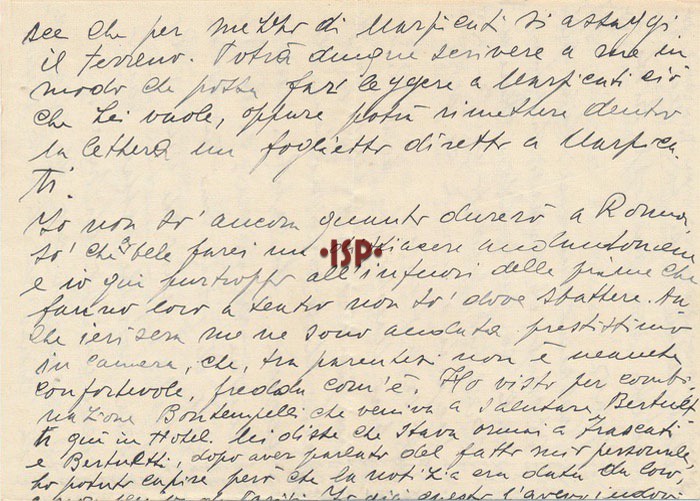 see che per mezzo di Marpicati si assaggi
il terreno. Potrà dunque scrivere a me in
modo che possa far leggere a Marpicati ciò
che Lei vuole, oppure potrà rimettere dentro
la lettera un foglietto diretto a Marpica-
ti.
Io non so' ancora quanto durerò a Roma,
so' che a farei un piacere andandomene
e io qui purtroppo all'infuori delle prime che
fanno loro a teatro non so' dove sbattere. An
che ieri sera me ne sono andata prestissimo
in camera, che, tra parentesi non è neanche
confortevole, fredda com'è. Ho visto per combi
nazione Bontempelli che veniva a salutare Bertulet
ti qui in Hotel. Mi disse che stava ormai a Frascati
e Bertuletti, dopo aver parlato del fatto mio personale
ho potuto capire però che la notizia era data da loro,
ISP